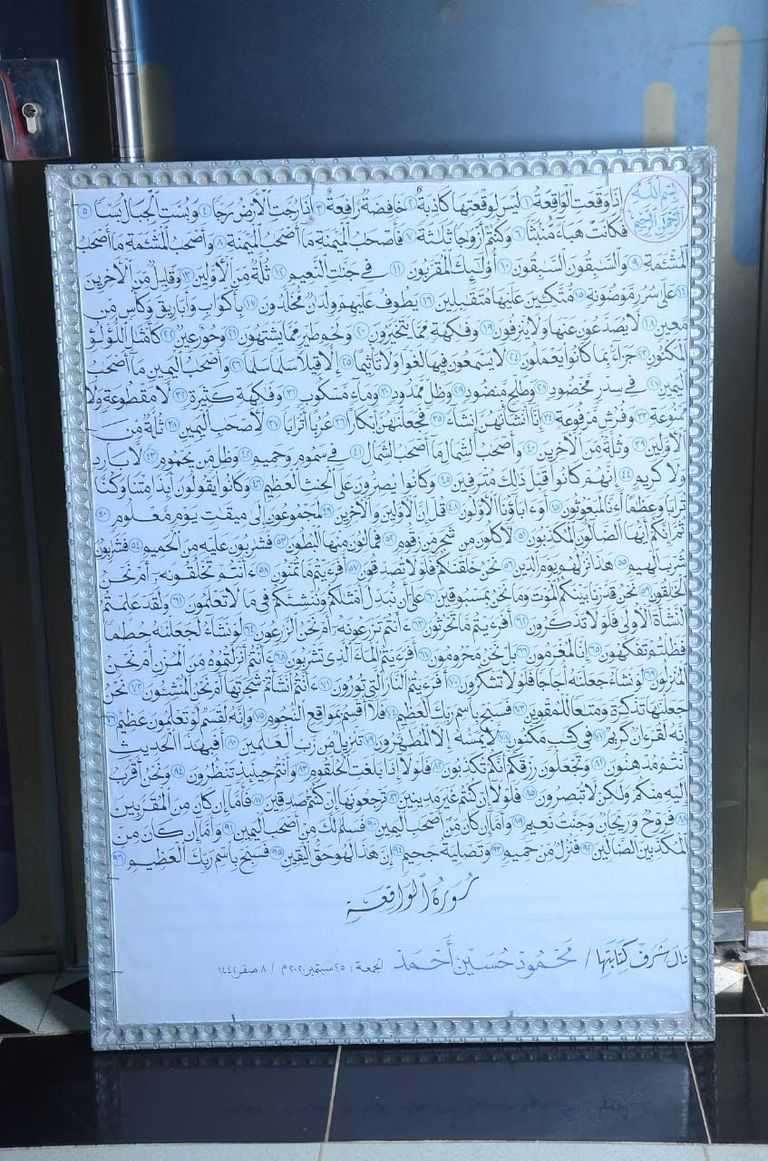 بسم الله الرحمن الرحيم
إذا وقعت الواقعة ١ ليس لوقعتها كاذبة ٢ خافضة رافعة ٣ إذا رجت الأرض رجا ٤ وبست الجبال بسا ٥
فكانت هباء منبثا ٦ وكنتم أزوجا ثلثة ٧ فأصحب الميمنة ما أصحب الميمنة ٨ وأصحب المشئمة ما أصحب
المشئمة ٩ والسبقون السبقون ١٠ أولئك المقربون ١١ في جنت النعيم ١٢ ثلة من الأولين ١٣ وقليل من الأخرين
١٤ على سرر موضونة ١٥ متكئين عليها متقبلين ١٦ يطوف عليهم ولدن مخلدون ١٧ بأكواب وأباريق وكأس من
معين ١٨ لا يصدعون عنها ولا ينزفون ١٩ وفكهة مما يتخيرون ٢٠ ولحم طير مما يشتهون ٢١ وحور عين ٢٢ كأمثل اللؤلؤ
المكنون ٢٣ جزاء بما كانوا يعملون ٢٤ لا يسمعون فيها لغوا ولا تأثيما ٢٥ إلا قيلا سلما سلما ٢٦ وأصحب اليمين ما أصحب
اليمين ٢٧ في سدر مخضود ٢٨ وطلح منضود ٢٩ وظل ممدود ٣٠ وماء مسكوب ٣١ وفكهة كثيرة ٣٢ لا مقطوعة ولا
ممنوعة ٣٣ وفرش مرفوعة ٣٤ إنا أنشأنهن إنشاء ٣٥ فجعلنهن أبكارا ٣٦ عربا أترابا ٣٧ لأصحب اليمين ٣٨ ثلة من
الأولين ٣٩ وثلة من الأخرين ٤٠ وأصحب الشمال ما أصحب الشمال ٤١ في سموم وحميم ٤٢ وظل من يحموم ٤٣ لا بارد
ولا كريم ٤٤ إنهم كانوا قبل ذلك مترفين ٤٥ وكانوا يصرون على الحنث العظيم ٤٦ وكانوا يقولون أئذا متنا وكنا
ترابا وعظما أءنا لمبعوثون ٤٧ أوءاباؤنا الأولون ٤٨ قل إن الأولين والأخرين ٤٩ لمجموعون إلى ميقت يوم معلوم ٥٠
ثم إنكم أيها الضالون المكذبون ٥١ لأكلون من شجر من زقوم ٥٢ فمالئون منها البطون ٥٣ فشربون عليه من الحميم ٥٤ فشربون
شرب الهيم ٥٥ هذا نزلهم يوم الدين ٥٦ نحن خلقنكم فلولا تصدقون ٥٧ أفرءيتم ما تمنون ٥٨ ءأنتم تخلقونه أم نحن
الخلقون ٥٩ نحن قدرنا بينكم الموت وما نحن بمسبوقين ٦٠ على أن نبدل أمثلكم وننشئكم في ما لا تعلمون ٦١ ولقد علمتم
النشأة الأولى فلولا تذكرون ٦٢ أفرءيتم ما تحرثون ٦٣ ءأنتم تزرعونه أم نحن الزرعون ٦٤ لو نشاء لجعلنه حطما
فظلتم تفكهون ٦٥ إنا لمغرمون ٦٦ بل نحن محرومون ٦٧ أفرءيتم الماء الذي تشربون ٦٨ ءأنتم أنزلتموه من المزن أم نحن
المنزلون ٦٩ لو نشاء جعلنه أجاجا فلولا تشكرون ٧٠ أفرءيتم النار التي تورون ٧١ ءأنتم أنشأتم شجرتها أم نحن المنشئون ٧٢ نحن
جعلنها تذكرة ومتعا للمقوين ٧٣ فسبح باسم ربك العظيم ٧٤ فلا أقسم بموقع النجوم ٧٥ وإنه لقسم لو تعلمون عظيم ٧٦
إنه لقرءان كريم ٧٧ في كتب مكنون ٧٨ لا يمسه إلا المطهرون ٧٩ تنزيل من رب العلمين ٨٠ أفبهذا الحديث
أنتم مدهنون ٨١ وتجعلون رزقكم أنكم تكذبون ٨٢ فلولا إذا بلغت الحلقوم ٨٣ وأنتم حينئذ تنظرون ٨٤ ونحن أقرب
إليه منكم ولكن لا تبصرون ٨٥ فلولا إن كنتم غير مدينين ٨٦ ترجعونها إن كنتم صدقين ٨٧ فأما إن كان من المقربين
٨٨ فروح وريحان وجنت نعيم ٨٩ وأما إن كان من أصحب اليمين ٩٠ فسلم لك من أصحب اليمين ٩١ وأما إن كان من
المكذبين الضالين ٩٢ فنزل من حميم ٩٣ وتصلية جحيم ٩٤ إن هذا لهو حق اليقين ٩٥ فسبح باسم ربك العظيم ٩٦
سورة الواقعة
نال شرف كتابتها / محمود حسين أحمد الجمعة : ٢٥ سبتمبر ٢٠٢٠ م / ٨ صفر ١٤٤٢